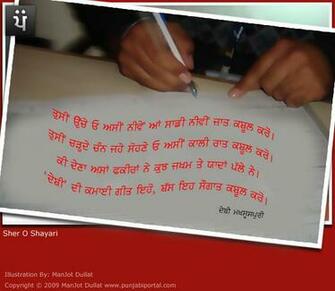 ਤੁਸੀਂ ਉਚੇ ਓ ਅਸੀਂ ਨੀਵੇਂ ਆਂ ਸਾਡੀ ਨੀਵੀਂ ਜਾਤ ਕਬੂਲ ਕਰੋ।
ਤੁਸੀਂ ਚੜ੍ਹਦੇ ਚੰਨ ਜਹੇ ਸੋਹਣੇ ਓ ਅਸੀਂ ਕਾਲੀ ਰਾਤ ਕਬੂਲ ਕਰੋ।
ਕੀ ਦੇਣਾ ਅਸਾਂ ਫਕੀਰਾਂ ਨੇ ਕੁਝ ਜਖਮ ਤੇ ਯਾਦਾਂ ਪੱਲੇ ਨੇ।
'ਦੇਬੀ' ਦੀ ਕਮਾਈ ਗੀਤ ਇਹੋ, ਬੱਸ ਇਹ ਸੌਗਾਤ ਕਬੂਲ ਕਰੋ।
ਦੇਬੀ ਮਖਸੂਸਪੁਰੀ
Sher O Shayari
Illustration By: ManJot Dullat
Copyright © 2009 ManJot Dullat www.punjabiportal.com